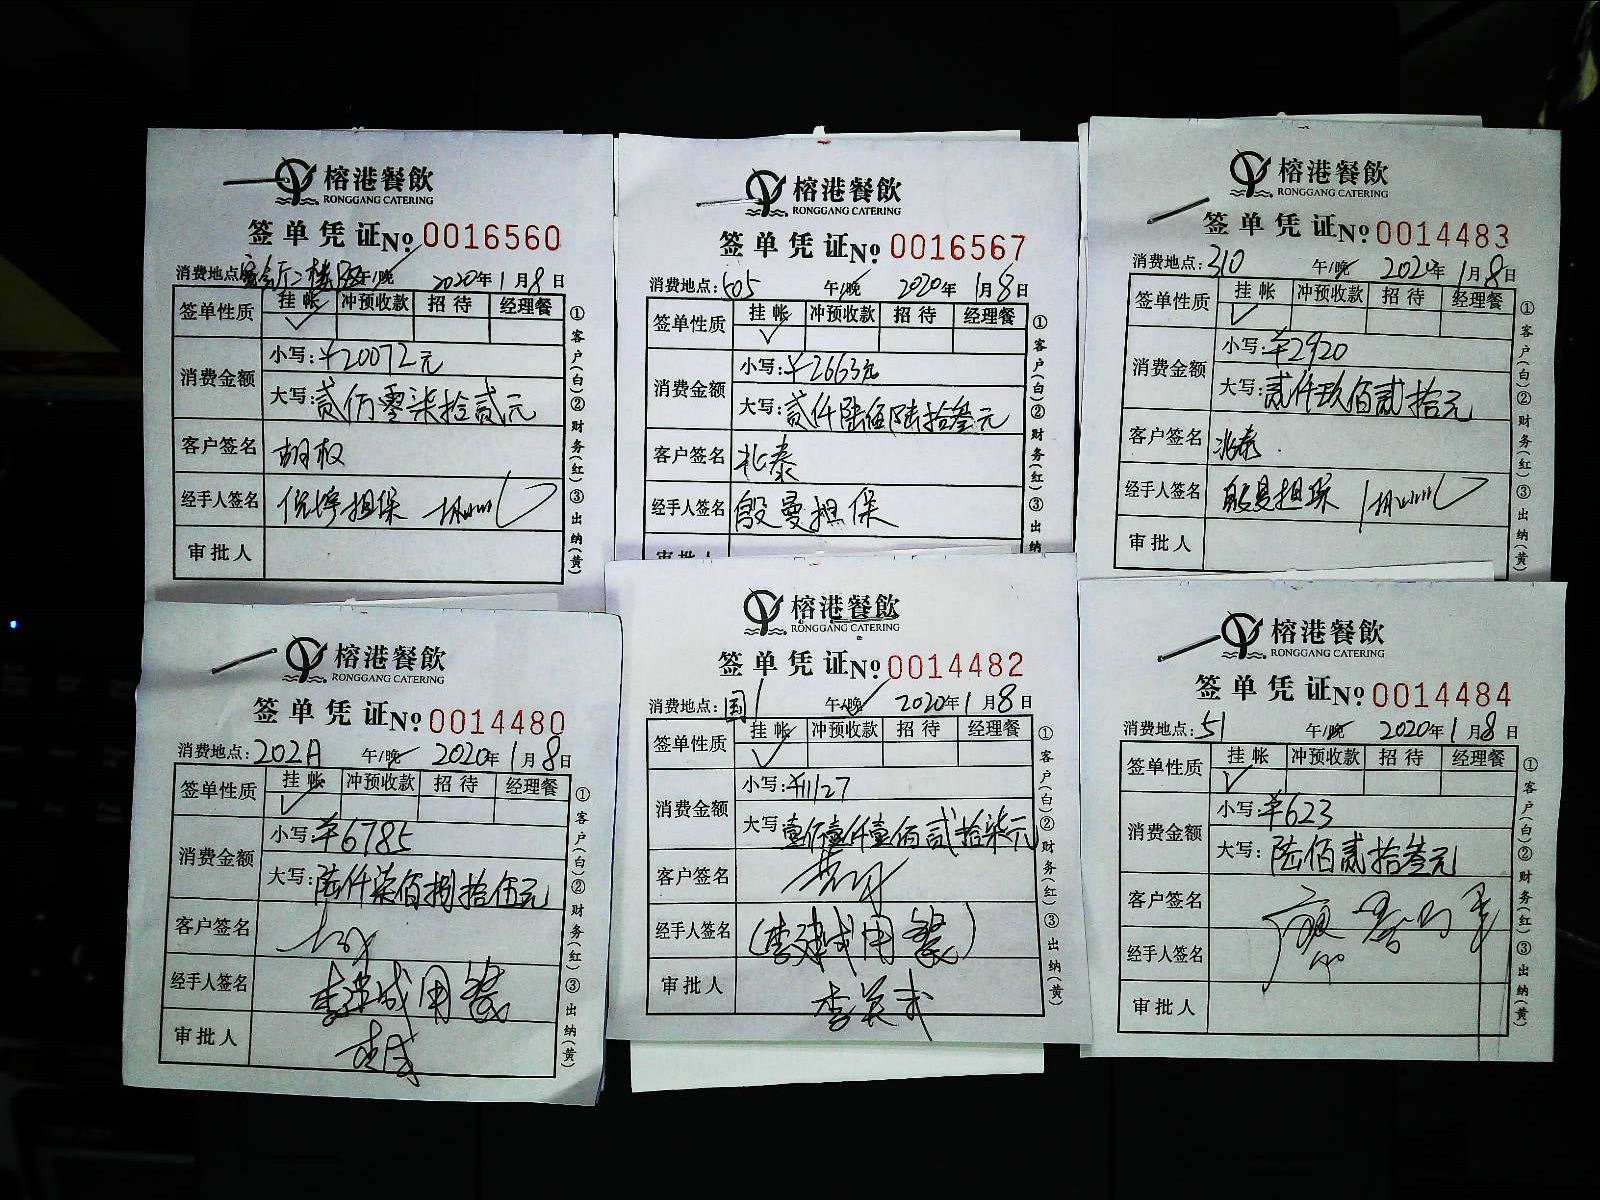 榕港餐飲
RONGGANG CATERING
签单凭证 No 0016560
消费地点: 午/晚 2020年1月8日
签单性质 挂帐 冲预收款 招待 经理餐
✓
消费金额 小写:¥20072元
大写:贰万零柒拾贰元
客户签名 胡权
经手人签名 倪婷担保
审批人
①客户(白)②财务(红)③出纳(黄)
榕港餐飲
RONGGANG CATERING
签单凭证 No 0016567
消费地点:505 午/晚 2020年1月8日
签单性质 挂帐 冲预收款 招待 经理餐
✓
消费金额 小写:¥2663元
大写:贰仟陆佰陆拾叁元
客户签名 兆泰
经手人签名 殷曼担保
审批人
①客户(白)②财务(红)③出纳
榕港餐飲
RONGGANG CATERING
签单凭证 No 0014483
消费地点:310 午/晚 2020年1月8日
签单性质 挂帐 冲预收款 招待 经理餐
✓
消费金额 小写:¥2920
大写:贰仟玖佰贰拾元
客户签名 兆泰
经手人签名 殷曼担保
审批人
①客户(白)②财务(红)③出纳(黄)
榕港餐飲
RONGGANG CATERING
签单凭证 No 0014480
消费地点:202A 午/晚 2020年1月8日
签单性质 挂帐 冲预收款 招待 经理餐
✓
消费金额 小写:¥6785
大写:陆仟柒佰捌拾伍元
客户签名
经手人签名 李建成用餐
审批人
①客户(白)②财务(红)③出纳(黄)
榕港餐飲
RONGGANG CATERING
签单凭证 No 0014482
消费地点:国1 午/晚 2020年1月8日
签单性质 挂帐 冲预收款 招待 经理餐
✓
消费金额 小写:¥11127
大写:壹万壹仟壹佰贰拾柒元
客户签名
经手人签名 (李建成用餐)
审批人
①客户(白)②财务(红)③出纳(黄)
榕港餐飲
RONGGANG CATERING
签单凭证 No 0014484
消费地点:51 午/晚 2020年1月8日
签单性质 挂帐 冲预收款 招待 经理餐
✓
消费金额 小写:¥623
大写:陆佰贰拾叁元
客户签名
经手人签名
审批人
①客户(白)②财务(红)③出纳(黄)